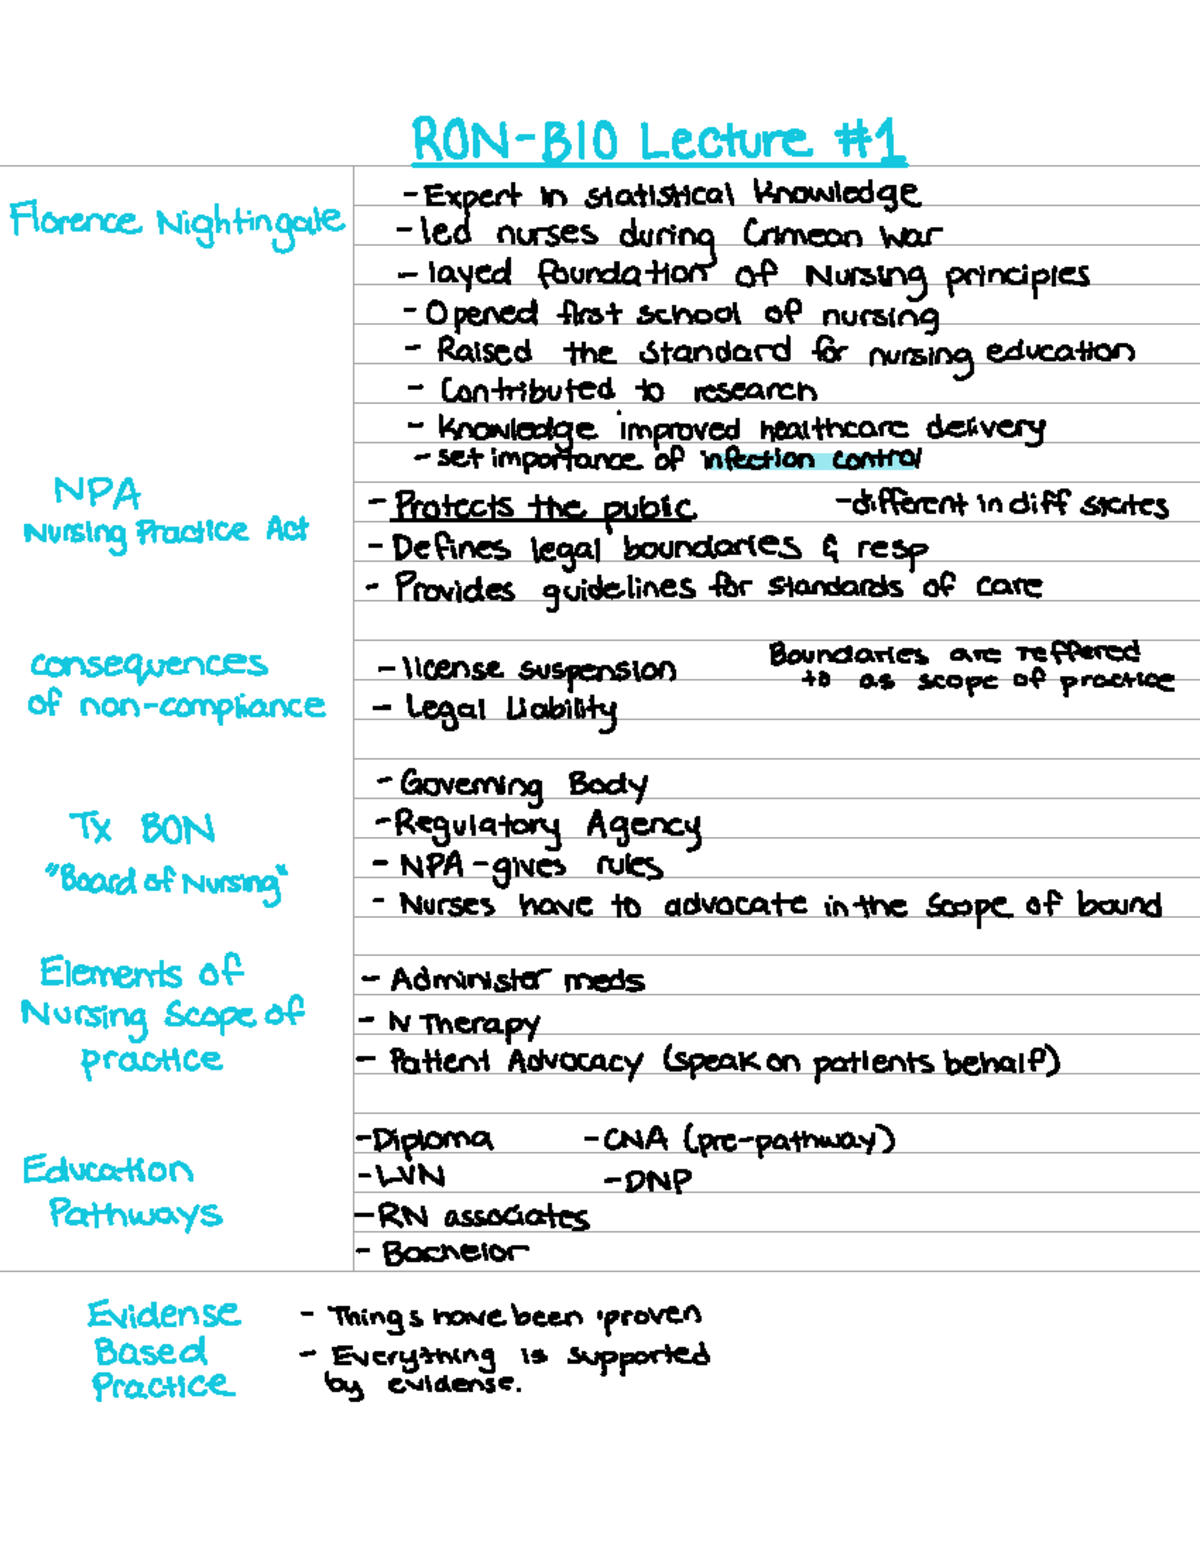 RON-BIO Lecture #1
Florence Nightingale
- Expert in statistical knowledge
- led nurses during Crimean War
- layed foundation of Nursing principles
- Opened first school of nursing
- Raised the standard for nursing education
- Contributed to research
- Knowledge improved healthcare delivery
- set importance of infection control
NPA
Nursing Practice Act
- Protects the public -different in diff states
- Defines legal boundaries & resp
- Provides guidelines for standards of care
consequences
of non-compliance
- license suspension
- Legal Liability
Boundaries are reffered
to as scope of practice
Tx BON
"Board of Nursing"
- Governing Body
- Regulatory Agency
- NPA - gives rules
- Nurses have to advocate in the scope of bound
Elements of
Nursing Scope of
practice
- Administer meds
- IV Therapy
- Patient Advocacy (speak on patients behalf)
Education
Pathways
- Diploma - CNA (pre-pathway)
- LVN - DNP
- RN associates
- Bachelor
Evidense
Based
Practice
- Things have been proven
- Everything is supported
by evidense.